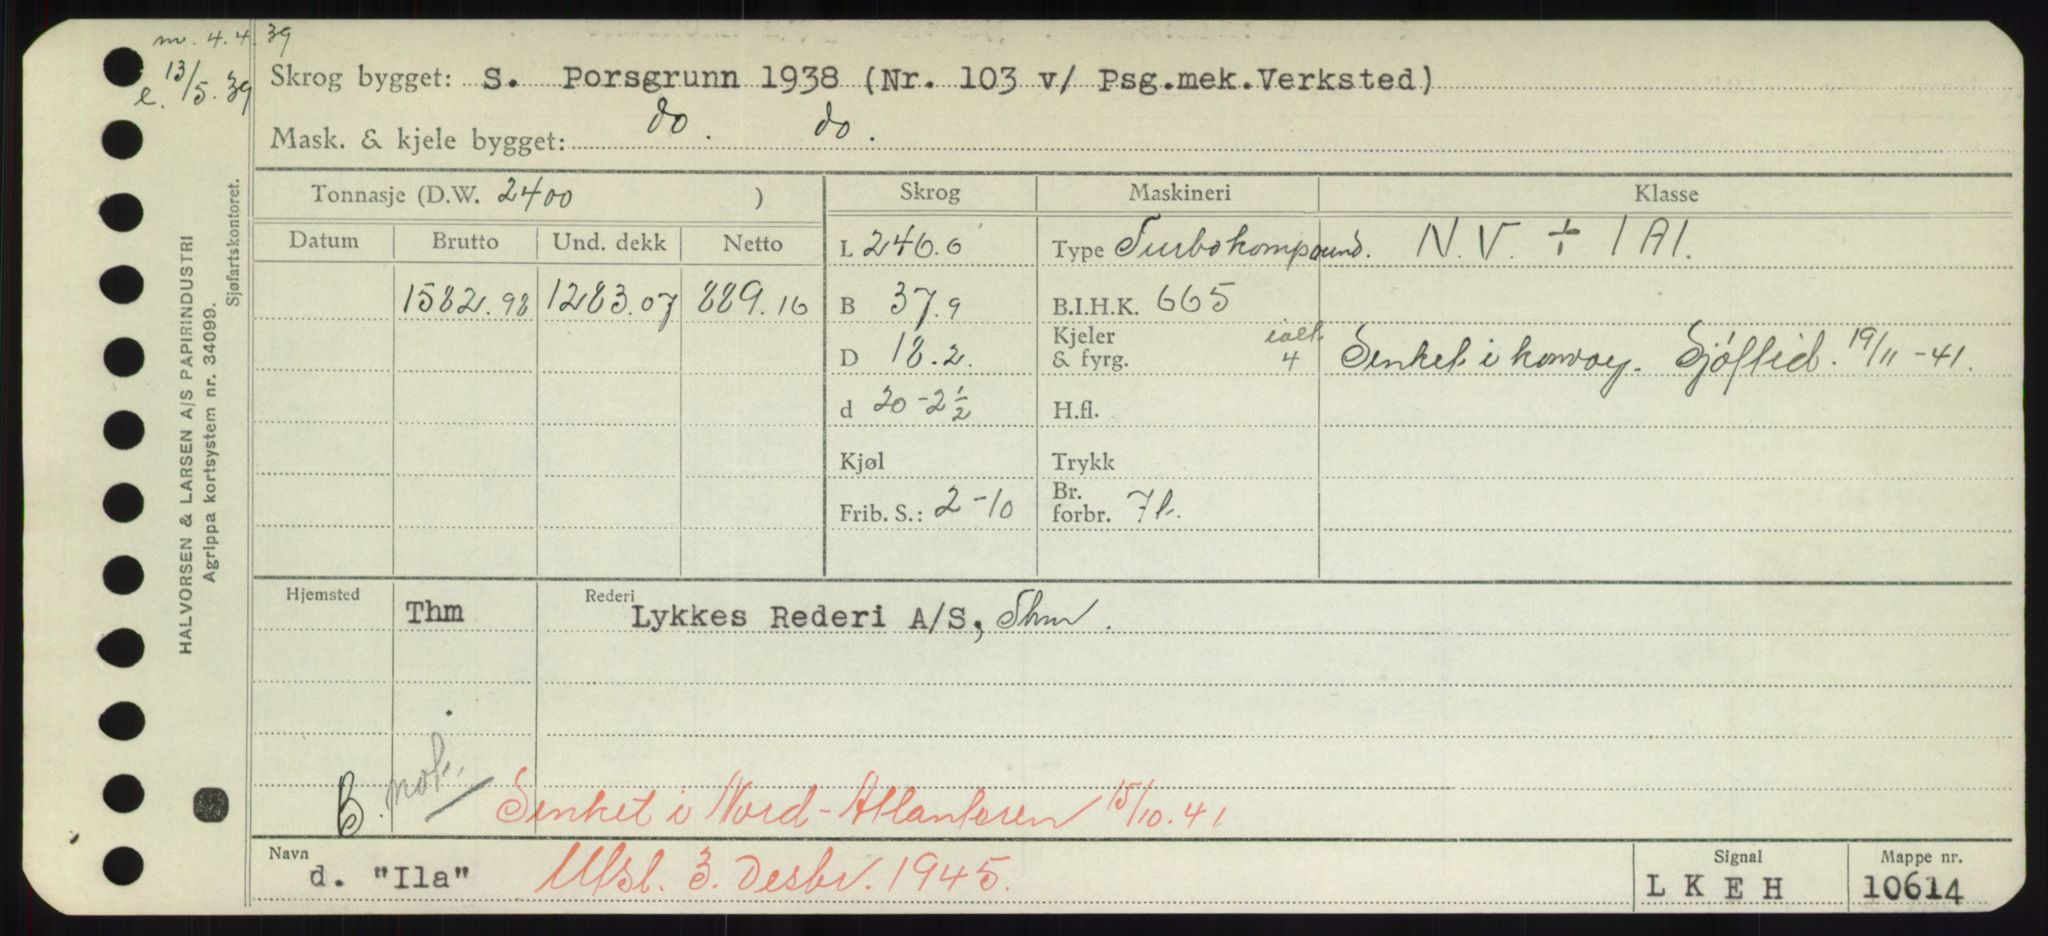 m. 4.4.39
e. 13/5.39
Skrog bygget: S. Porsgrunn 1938 (Nr. 103 v/ Psg.mek.Verksted)
Mask. & kjele bygget: do. do.
Tonnasje (D.W. 2400 ) Skrog Maskineri Klasse
Datum Brutto Und. dekk Netto
L 246.0 Type Turbokompound. N.V. ÷ 1A1.
1582.98 1283.07 889.16 B 37.9 B.I.H.K. 665
D 18.2. Kjeler & fyrg. ialt 4 Senket i konvoy. Sjøftid. 19/11-41.
d 20-2½ H.fl.
Kjøl Trykk
Frib. S.: 2-10 Br. forbr. 7 t.
Hjemsted Thm Rederi Lykkes Rederi A/S, Thm.
B. not. Senket i Nord-Atlanteren 15/10.41
Navn d. "Ila" Utsl. 3. Desbr. 1945. Signal LKEH Mappe nr. 10614
HALVORSEN & LARSEN A/S PAPIRINDUSTRI
Agrippa kortsystem nr. 34099.
Sjøfartskontoret.